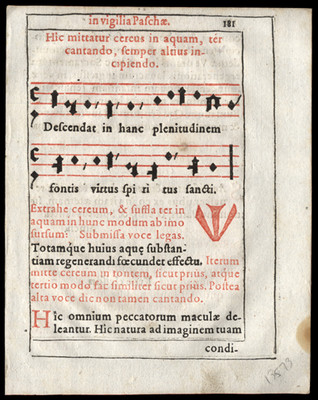 in vigilia Paschæ. 181
Hîc mittatur cereus in aquam, ter
cantando, semper altius in-
cipiendo.
Descendat in hanc plenitudinem
fontis virtus spi ri tus sancti.
Extrahe cereum, & suffla ter in
aquam in hunc modum ab imo
sursum. Submissa voce legas.
Totamq́ue huius aquę substan-
tiam regenerandi fœcundet effectu. Iterum
mitte cereum in fontem, sicut prius, atque
tertio modo fac similiter sicut prius. Postea
alta voce dic non tamen cantando.
Hîc omnium peccatorum maculæ de-
leantur. Hîc natura ad imaginem tuam
condi-
13573